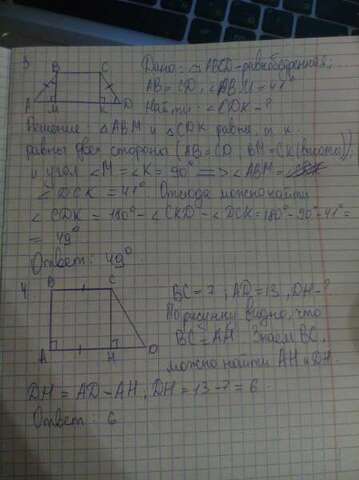 3
B C
A M K D
Дано: ABCD - равнобедренный;
AB = CD, ∠ABM = 41°
Найти: ∠CDK - ?
Решение △ABM и △CDK равны, т.к.
равны две стороны (AB = CD, BM = CK (высоты))
и угол ∠M = ∠K = 90° => ∠ABM =
∠DCK = 41°. Отсюда можно найти
∠CDK = 180° - ∠CKD - ∠DCK = 180° - 90° - 41° =
= 49°
Ответ: 49°
4.
B C
A H D
BC = 7, AD = 13, DH - ?
По рисунку видно, что
BC = AH. Зная BC,
можно найти AH и DH.
DH = AD - AH, DH = 13 - 7 = 6.
Ответ: 6